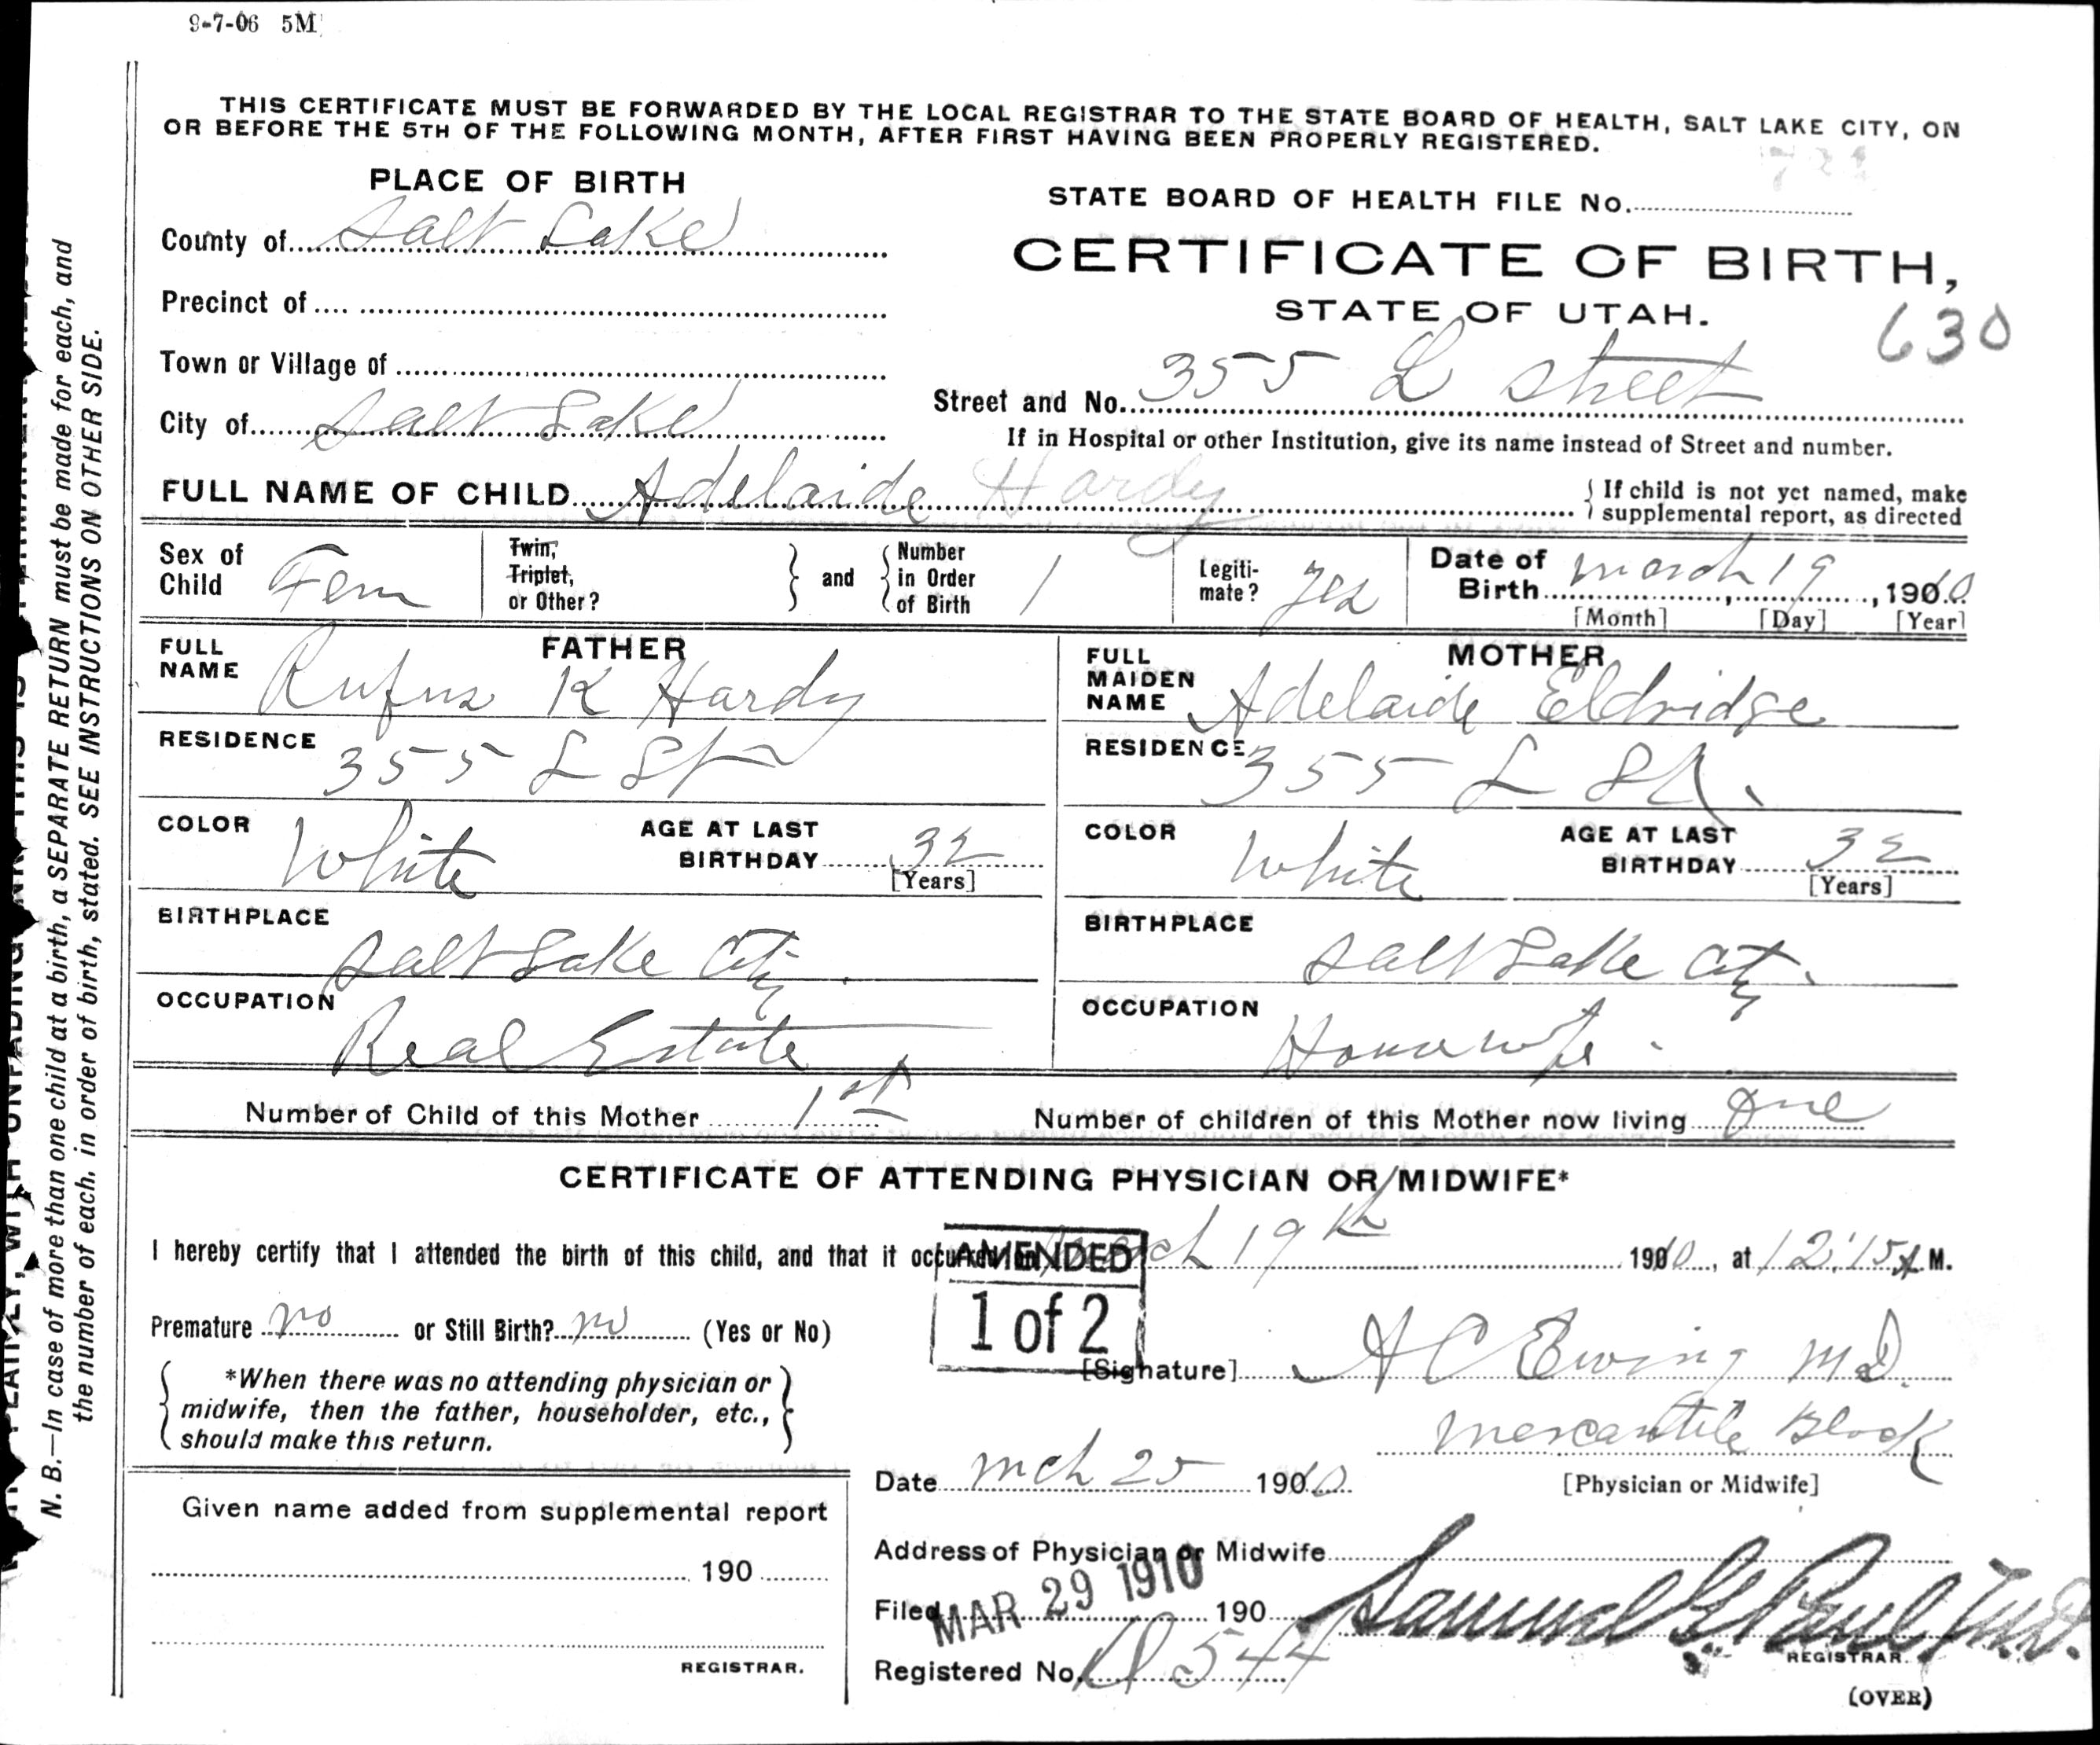 9-7-06 5M
THIS CERTIFICATE MUST BE FORWARDED BY THE LOCAL REGISTRAR TO THE STATE BOARD OF HEALTH, SALT LAKE CITY, ON
OR BEFORE THE 5TH OF THE FOLLOWING MONTH, AFTER FIRST HAVING BEEN PROPERLY REGISTERED.
PLACE OF BIRTH
County of Salt Lake
Precinct of
Town or Village of
City of Salt Lake
STATE BOARD OF HEALTH FILE No.
CERTIFICATE OF BIRTH,
STATE OF UTAH.
630
Street and No. 355 L Street
If in Hospital or other Institution, give its name instead of Street and number.
FULL NAME OF CHILD Adelaide Hardy
{ If child is not yet named, make
supplemental report, as directed
Sex of Child Fem
Twin, Triplet, or Other?
and
Number in Order of Birth 1
Legiti-mate? Yes
Date of Birth March 19, 1910
[Month] [Day] [Year]
FATHER
FULL NAME Rufus K Hardy
RESIDENCE 355 L St
COLOR White
AGE AT LAST BIRTHDAY 32
[Years]
BIRTHPLACE Salt Lake City
OCCUPATION Real Estate
MOTHER
FULL MAIDEN NAME Adelaide Eldridge
RESIDENCE 355 L St.
COLOR White
AGE AT LAST BIRTHDAY 32
[Years]
BIRTHPLACE Salt Lake City
OCCUPATION Housewife
Number of Child of this Mother 1st
Number of children of this Mother now living One
CERTIFICATE OF ATTENDING PHYSICIAN OR MIDWIFE*
I hereby certify that I attended the birth of this child, and that it occurred on March 19th 1910, at 12:15 A.M.
AMENDED
1 of 2
Premature no or Still Birth? no (Yes or No)
*When there was no attending physician or
midwife, then the father, householder, etc.,
should make this return.
[Signature] A C Ewing M.D.
Mercantile Block
[Physician or Midwife]
Date Mch 25 1910
Given name added from supplemental report
190
REGISTRAR.
Address of Physician or Midwife
Filed MAR 29 1910 190
Samuel G. Paul M.D.
REGISTRAR.
Registered No. 544
(OVER)
N. B.—In case of more than one child at a birth, a SEPARATE RETURN must be made for each, and
the number of each, in order of birth, stated. SEE INSTRUCTIONS ON OTHER SIDE.